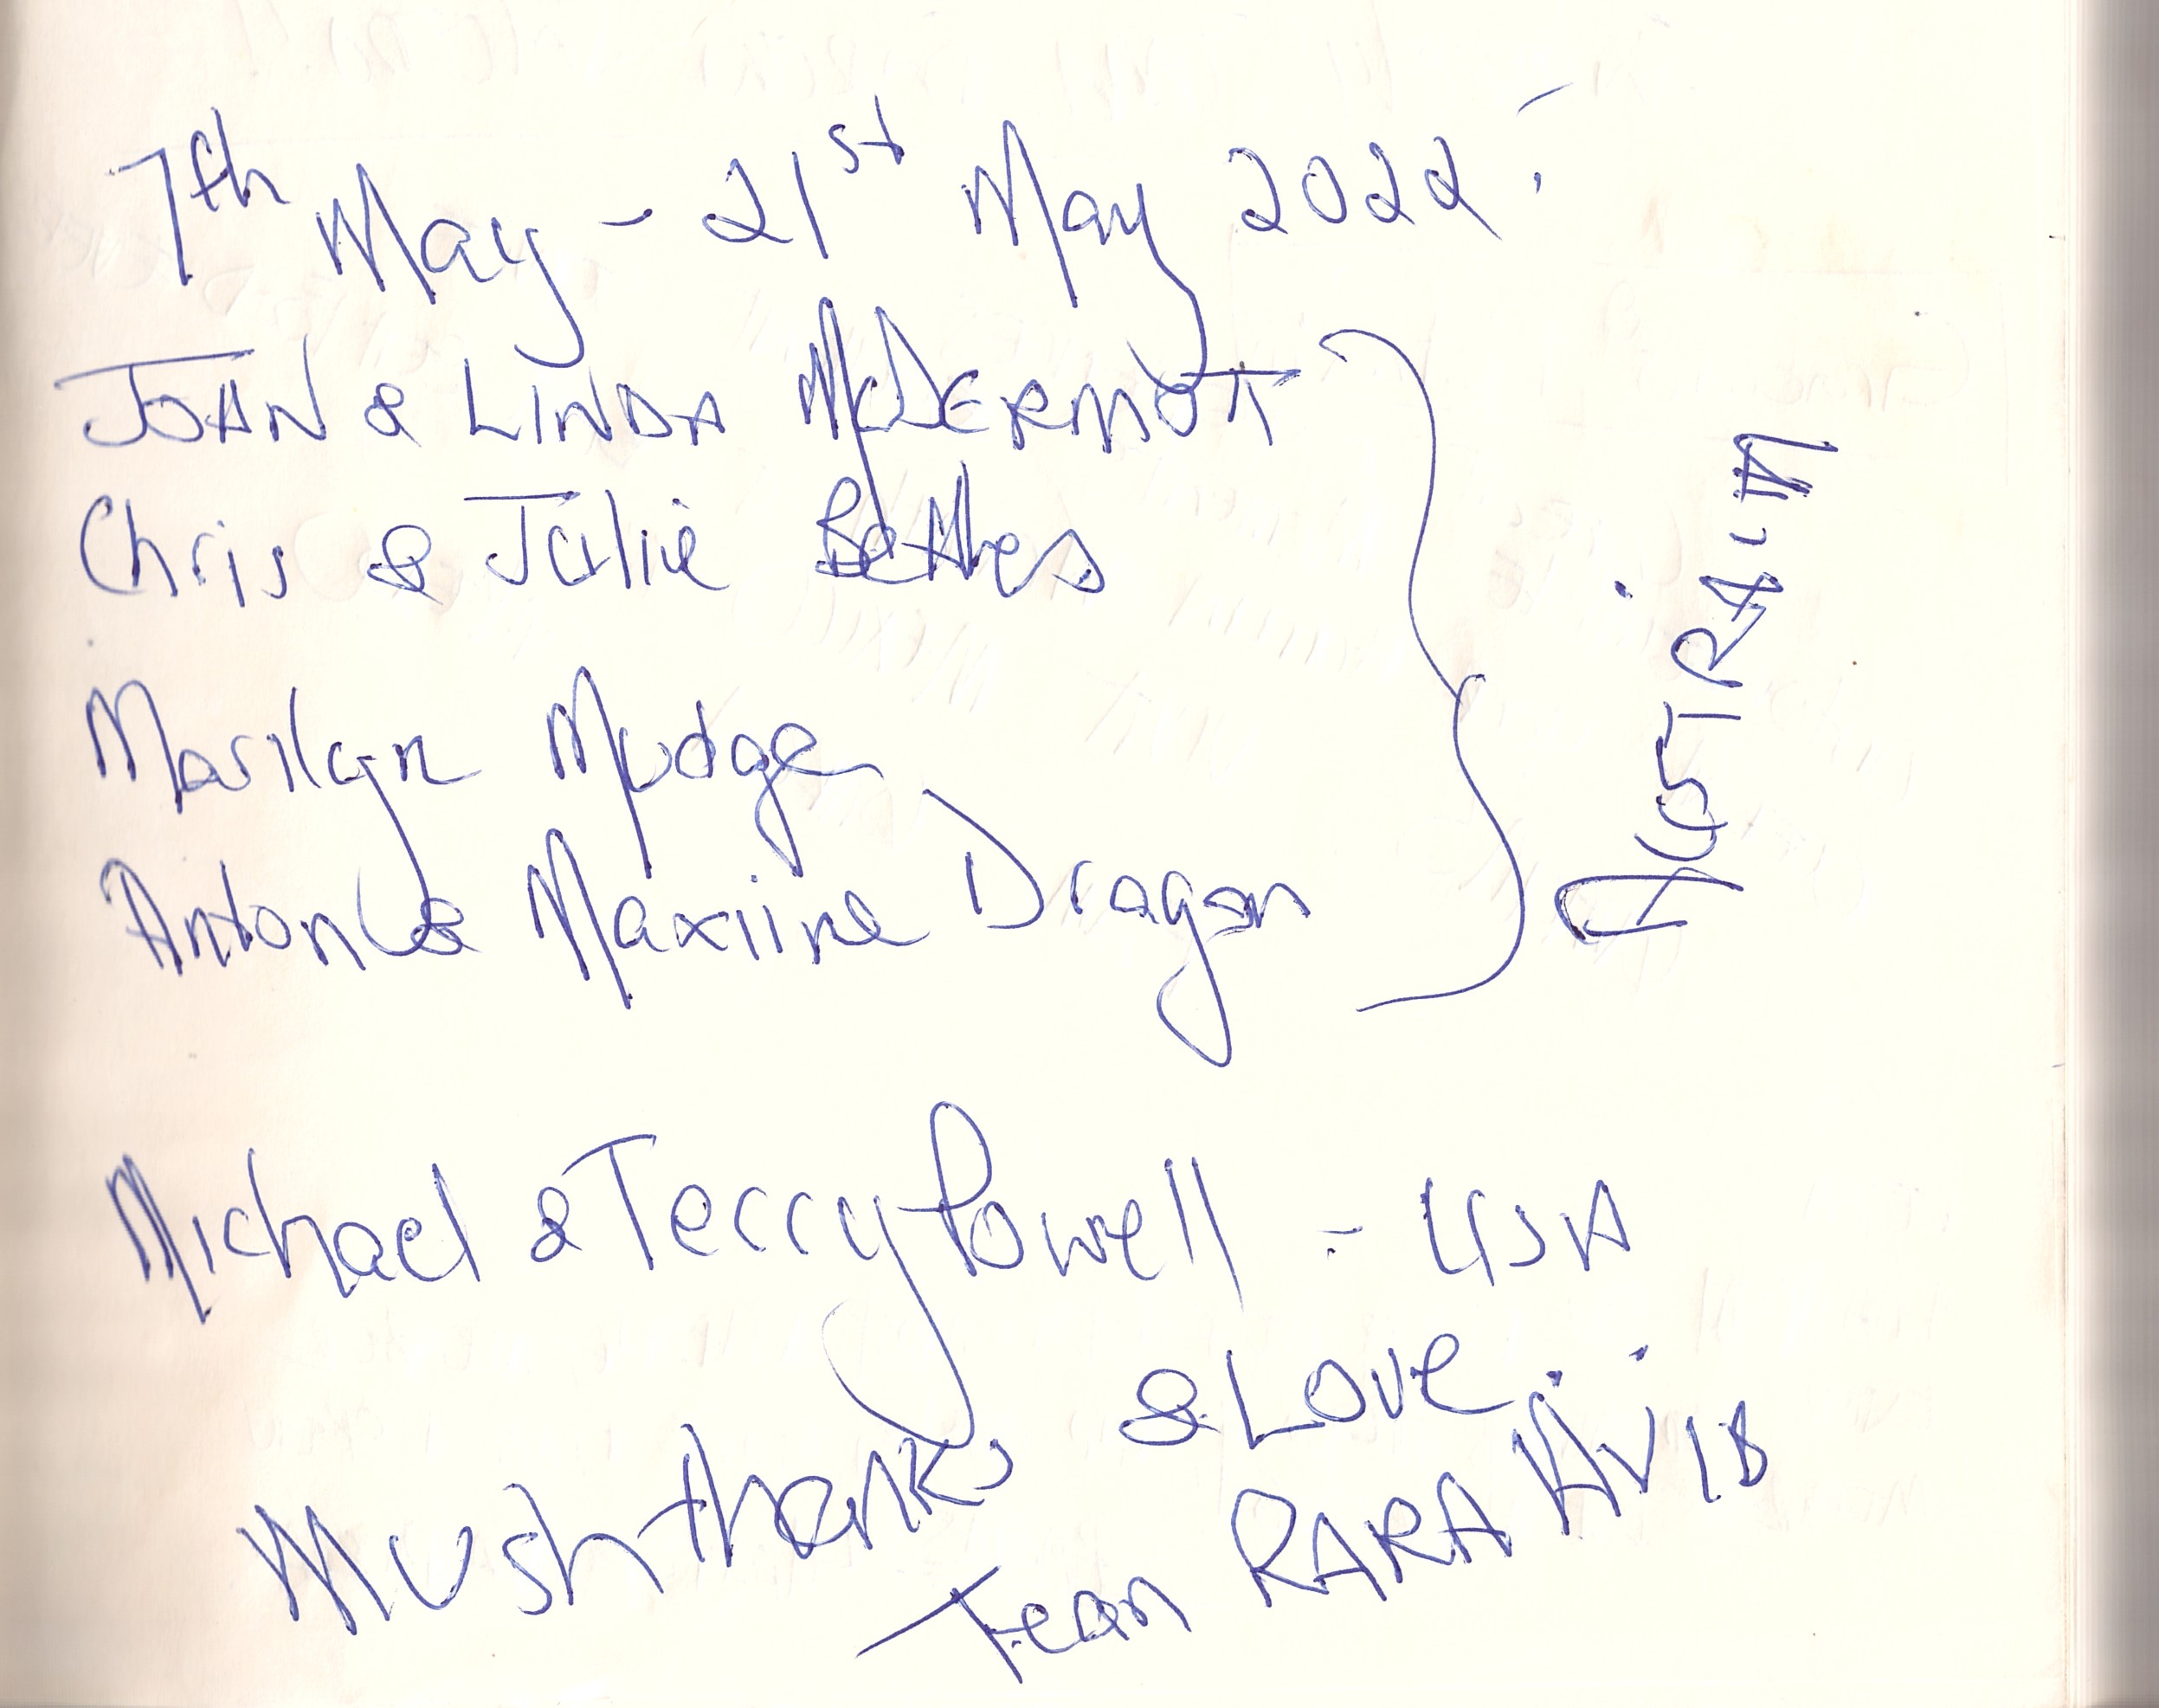 7th May - 21st May 2022!
JOHN & LINDA McDERMOTT
Chris & Julie Bethes
Marilyn Mudge
Anton & Maxiine Dragan
AUSTRALIA
Michael & Terry Powell - USA
Mush thanks & Love
Team RARA AVIS